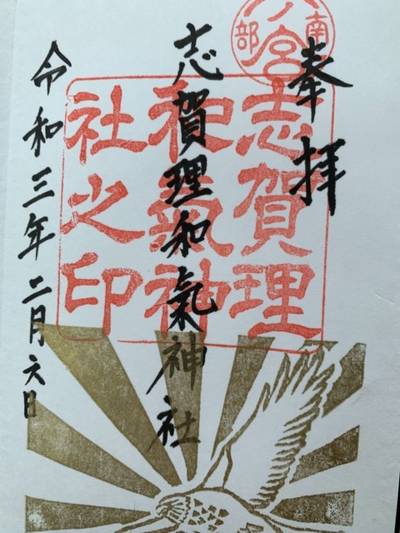 奉拝
志賀理和氣神社
令和三年二月六日
南部
一ノ宮
志賀理
和氣神
社之印